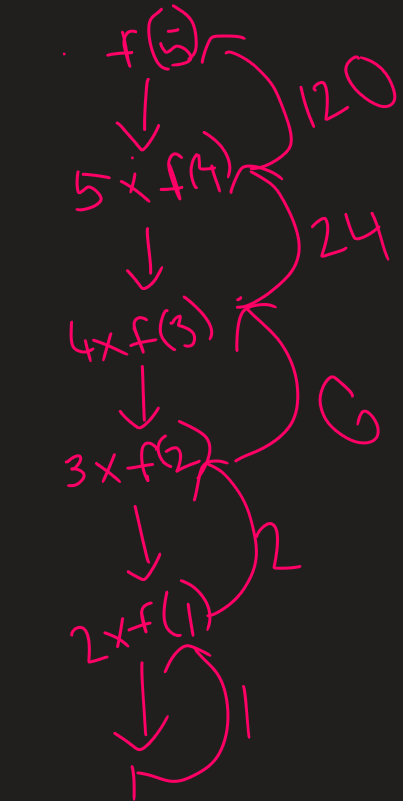 f(5)
120
5 x f(4)
24
4 x f(3)
6
3 x f(2)
2
2 x f(1)
1
1